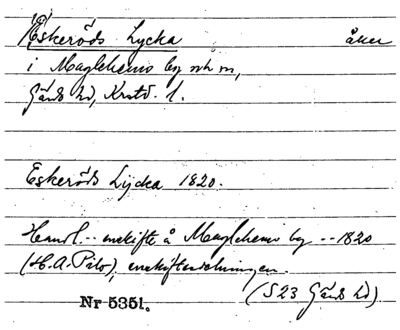 Eskeröds Lycka åker
i Maglehems by och sn,
Gärds hd, Krstd. l.
Eskeröds Lycka 1820.
Handl... enskifte å Maglehems by -- 1820
(H.A. Pihlo), enskiftesritningen.
(S 23 Gärds hd)
Nr 5351.